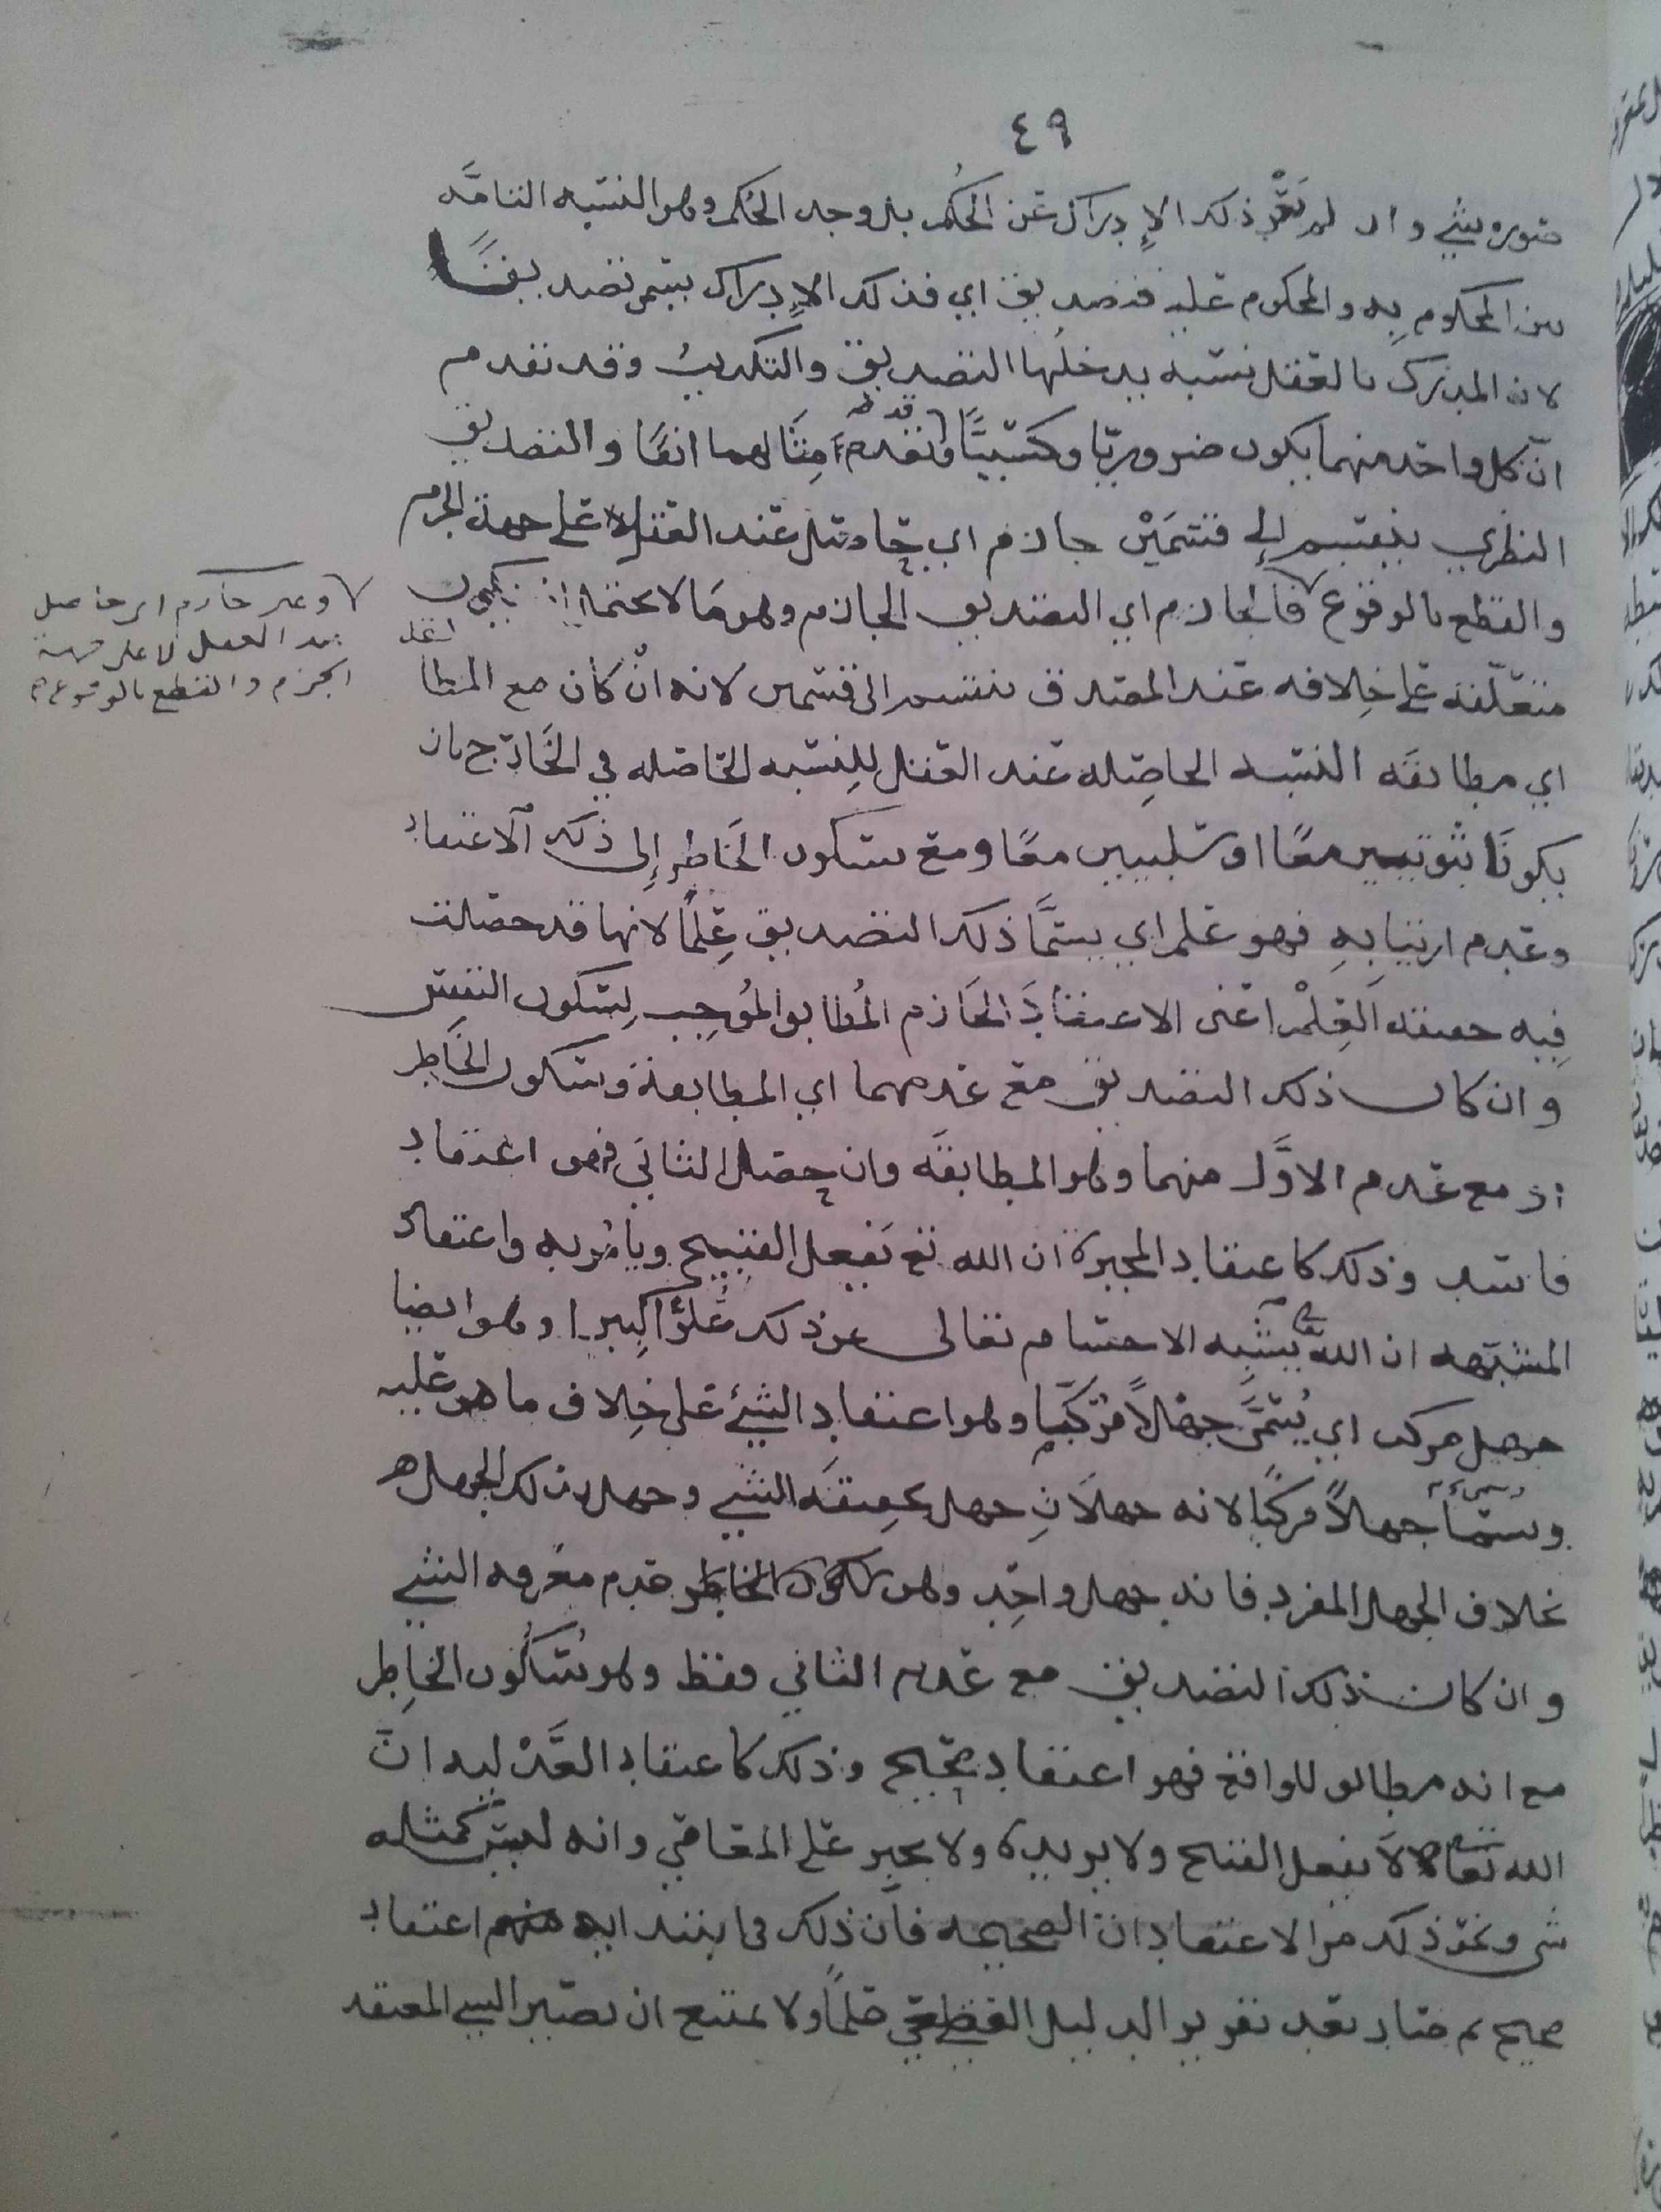 ٤٩
صوره شيء وان لم يَعْرَ ذلك الإدراك عن الحكم بل وجد الحكم وهو النسبه التامَّه
بين المحكوم به والمحكوم عليه فتصديق اي فذلك الإدراك يسمى تصديقًا
لان المدرك بالعقل نسبه يدخلها التصديق والتكذيب وقد تقدم
ان كل واحد منهما يكون ضروريًا وكسبيًّا وقد تقدم مِثَالهما انفًا والتصديق
النظري ينقسم إلى قسمَيْن جازم اي حاصل عند العقل على جهة الجزم
والقطع بالوقوع فالجازم اي التصديق الجازم وهو ما لا يحتمل ان يكون
متعلقه على خِلافه عند المصدق ينقسم الى قسمين لانه انْ كان مع المطا
اي مطابقَه النسبه الحاصِله عند العقل لِلنِسبه الحاصله في الخَارج بان
يكونَا ثبوتيين معًا او سلبيين معًا ومع سكون الخَاطِر إلى ذلك الاعتقاد
وعدم ارتيابهِ فهو علم اي يسمَّا ذلك التصديق عِلمًا لانها قد حصلت
فِيه حقيقة العِلْم اعني الاعتقادَ الجَازم المُطابق المُوجِب لِسكون النفس
وان كان ذلك التصديق مع عدمهما اي المطابقة وسكون الخَاطِر
او مع عدم الاوَّل منهما وهو المطابقَه وان حصل الثاني فهو اعتقاد
فاسد وذلك كاعتقاد المجبرة ان الله تع يَفعل القبيح ويأمُر به واعتقاد
المشبهه ان الله يشبه الاجسام تعالى عن ذلك عُلوًّا كبيرا وهو ايضا
جهل مركب اي يُسَمَّى جهْلاً مُركّبًا وهو اعتقاد الشيء على خِلاف ما هو عليه
وسمّا جهلاً مركبًا لانه جهلاَنِ جهل بحقيقَه الشي وجهل بذلك الجهل
بخلاف الجهل المفرد فانه جهل واحِد وهو عدم معرفه الشي
وان كان ذلك التصديق مع عدم الثاني فقط وهو سُكُون الخاطِر
مع انه مطابق للواقع فهو اعتقاد صحيح وذلك كاعتقاد العَدْليه انّ
الله تعالى لاَ يفعل القبيح ولا يريده ولا يجبر على المعاصي وانه ليس كمثله
شي ونحو ذلك من الاعتقادات الصحيحه فان ذلك في ابتدايه منهم اعتقاد
صحيح ثم صار بعد تقرير الدليل القطعي علمًا ولا يمتنع ان يصير الشي المعتقد
وغير جازم اي حاصل
عند العقل لا على جهة
الجزم والقطع بالوقوع